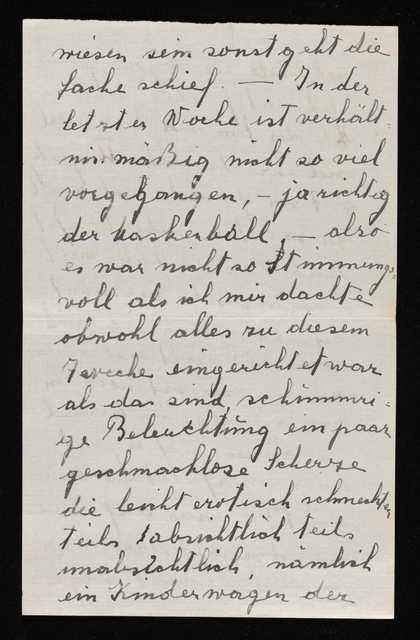 wiesen sein sonst geht die
Sache schief. — In der
letzten Woche ist verhält-
nismäßig nicht so viel
vorgegangen, — ja richtig
der Maskenball, — also
es war nicht so Stimmungs-
voll als ich mir dachte
obwohl alles zu diesem
Zwecke eingerichtet war
als da sind, schummri-
ge Beleuchtung ein paar
geschmacklose Scherze
die leicht erotisch schmeckten
teils absichtlich teils
unabsichtlich, nämlich
ein Kinderwagen der